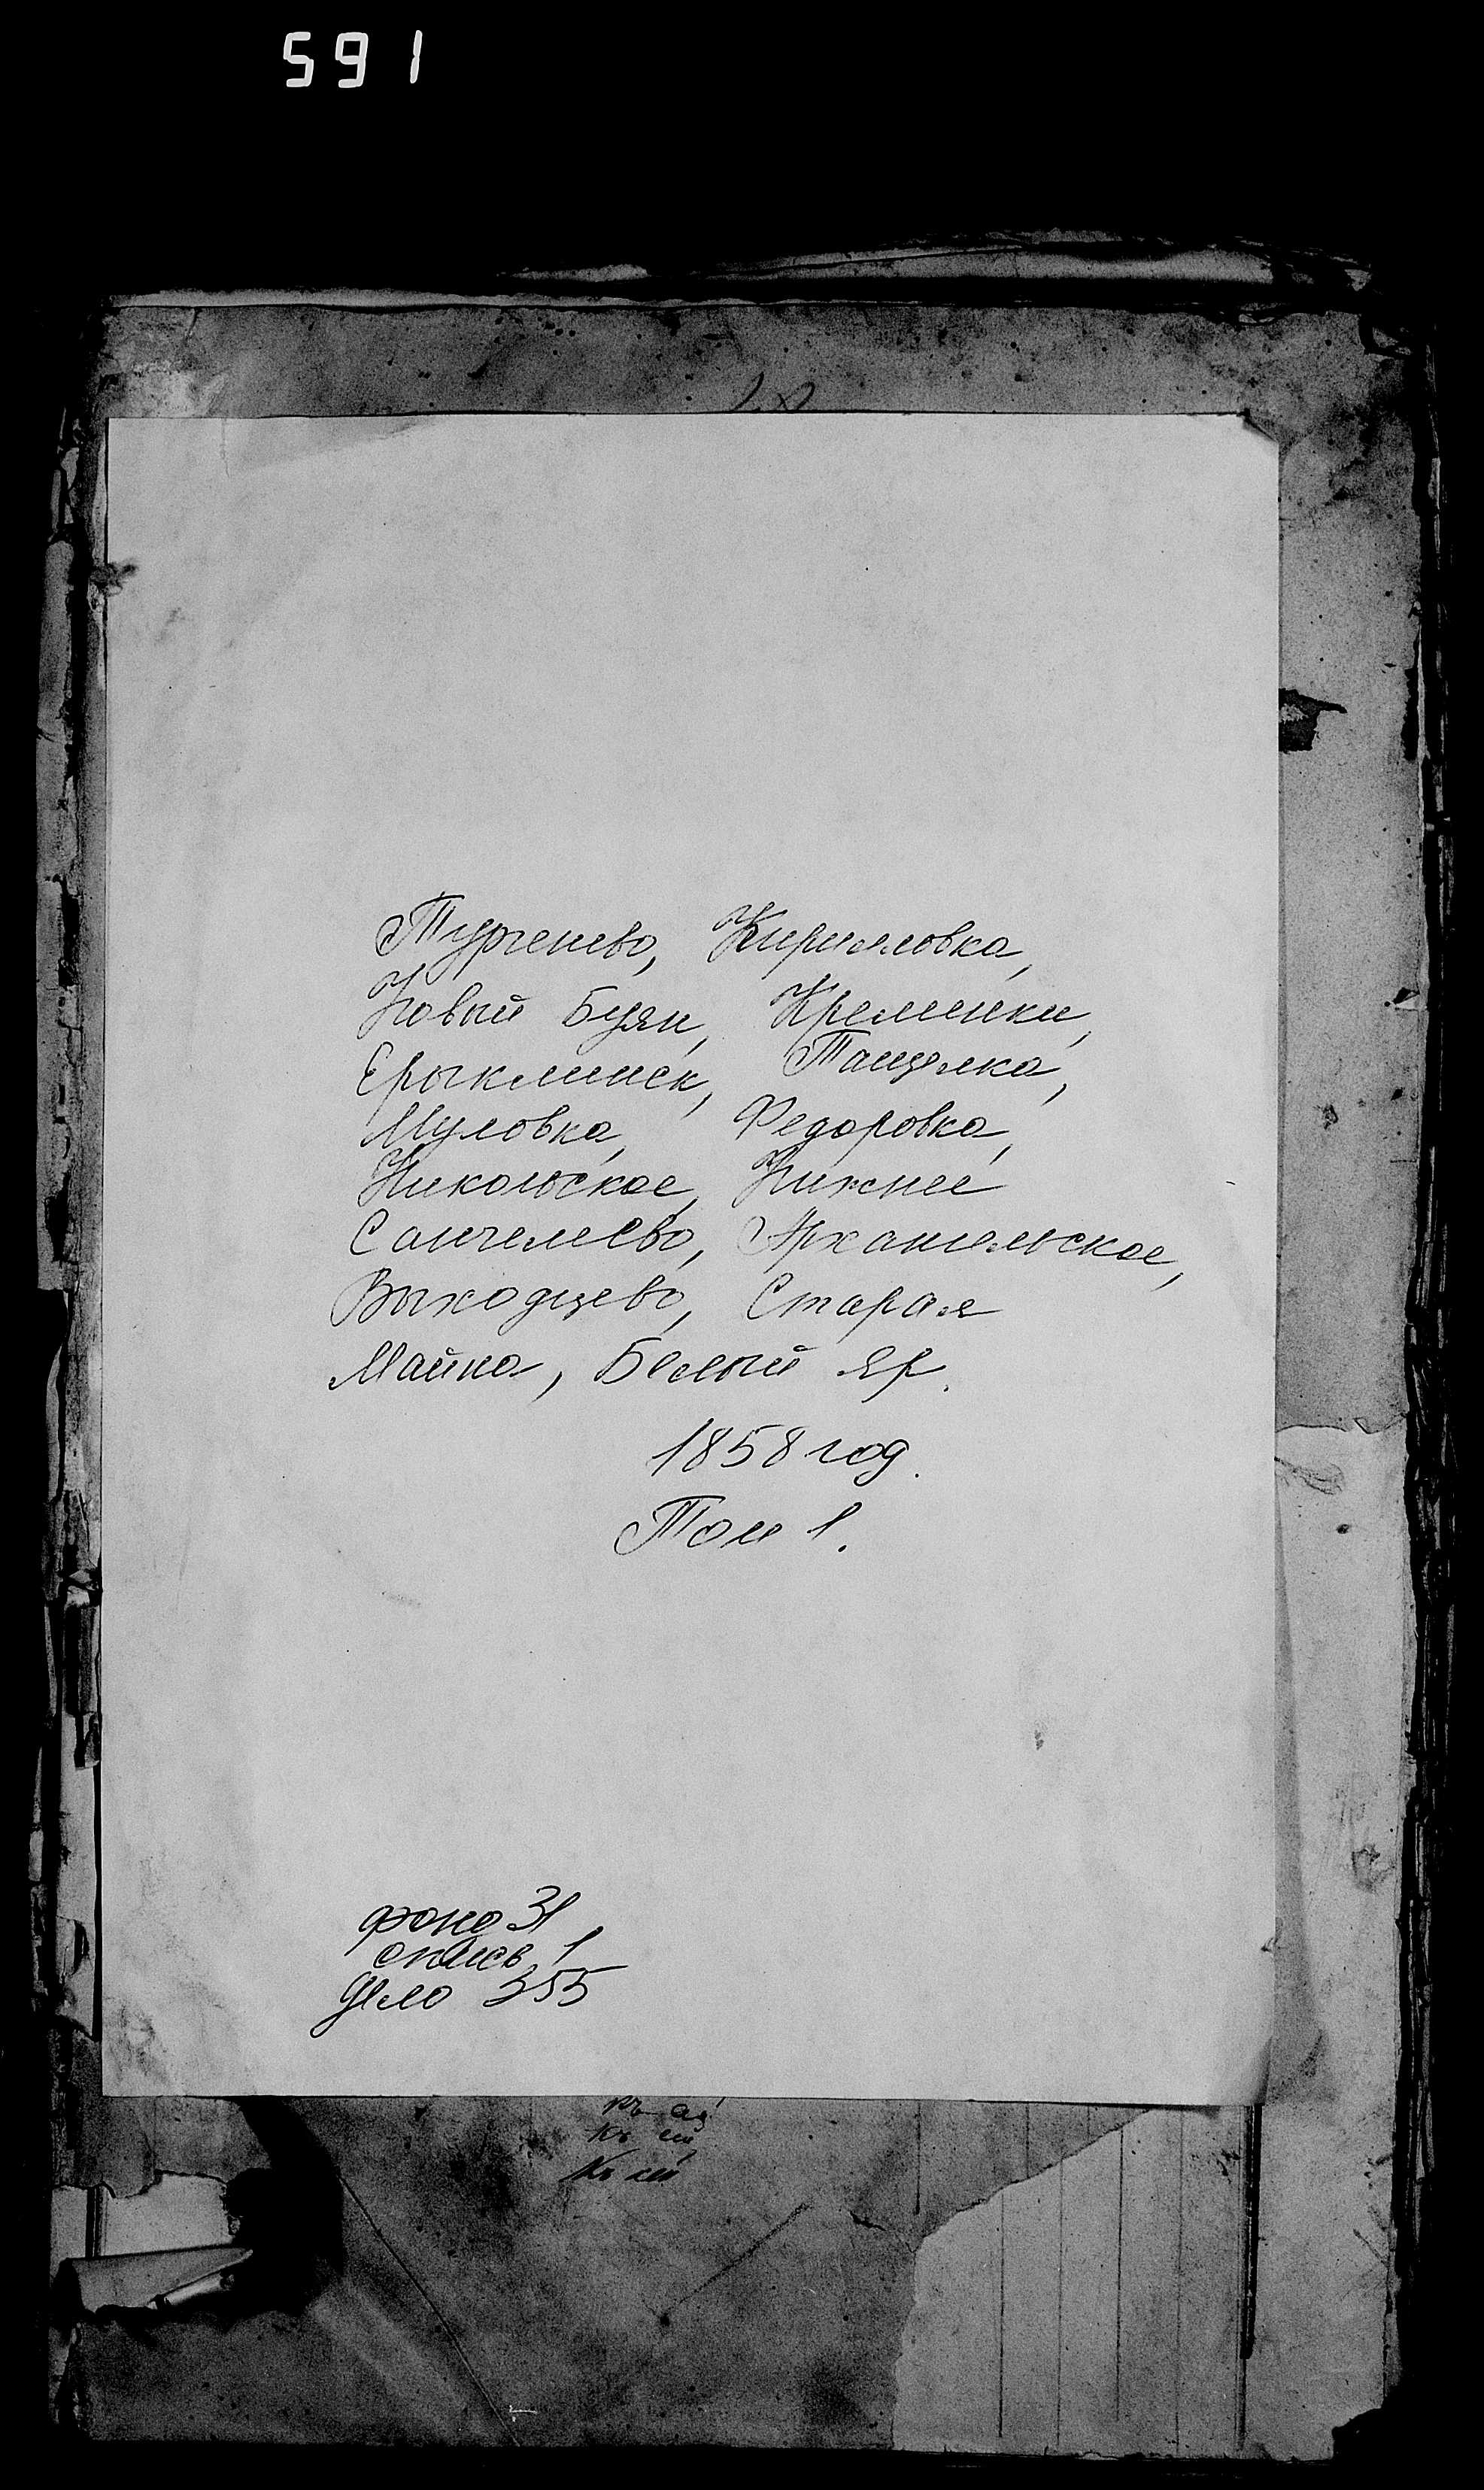 591
Тургенево, Кирилловка,
Новый Буян, Кременки,
Ерыклинск, Ташелка,
Муловка, Федоровка,
Никольское, Нижнее
Санчелеево, Архангельское,
Выходцево, Старая
Майна, Белый Яр.
1858 год.
Том 1.
фонд 31,
опись 1
дело 355